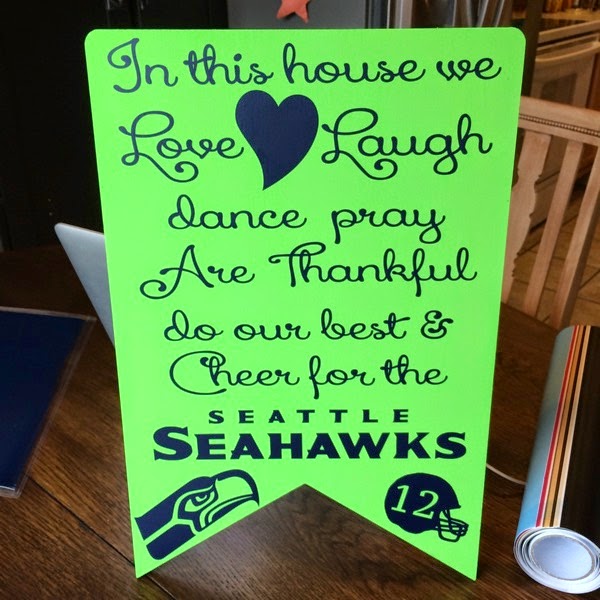 In this house we
Love Laugh
dance pray
Are Thankful
do our best &
Cheer for the
SEATTLE
SEAHAWKS
12